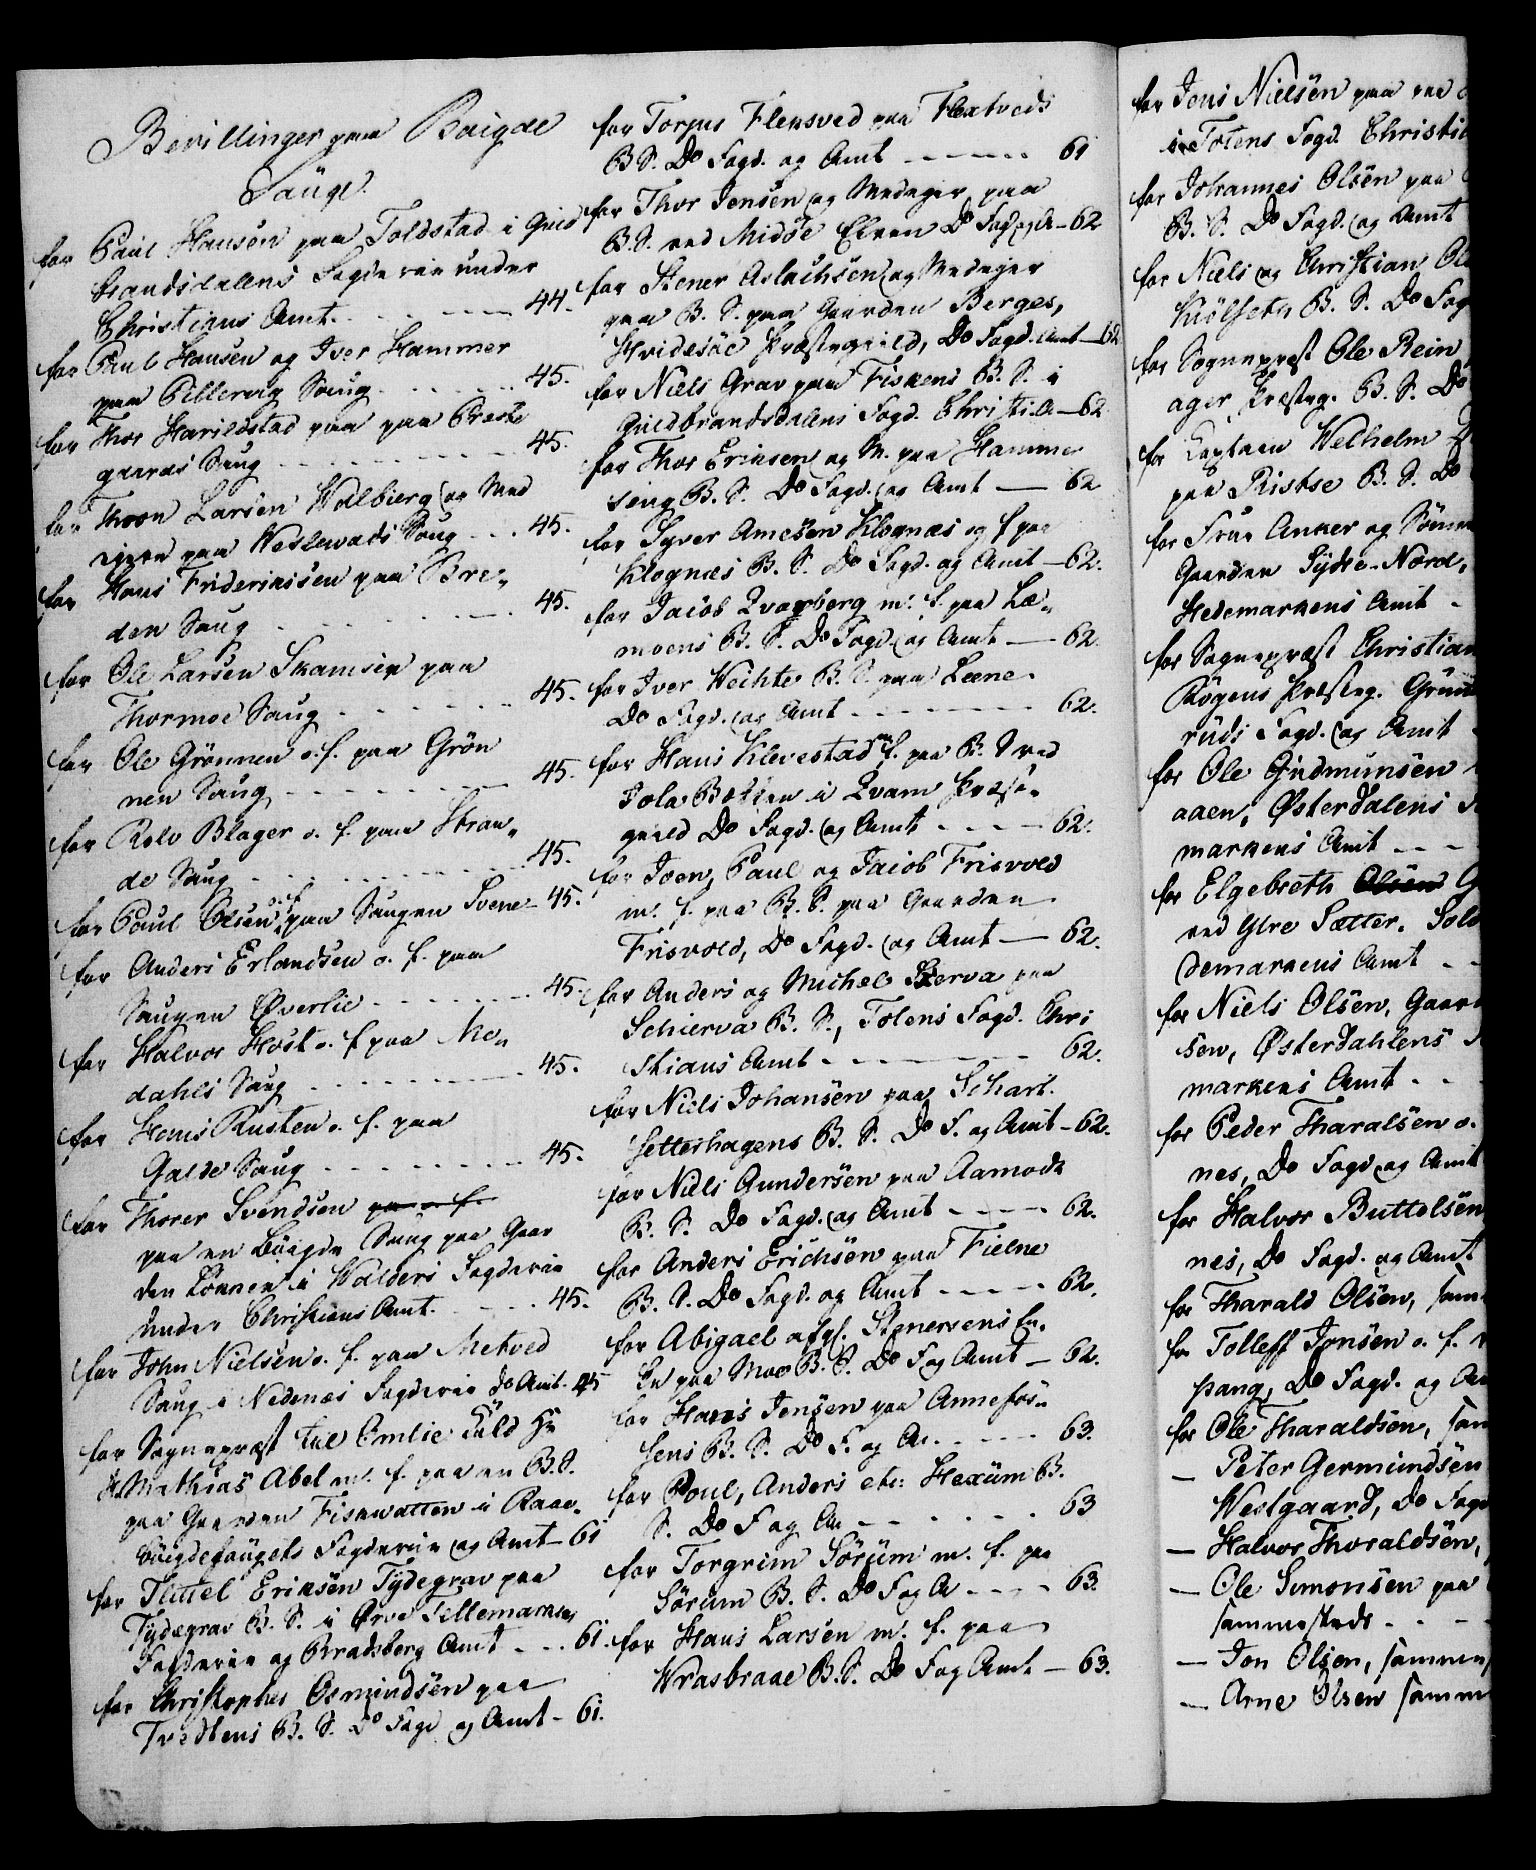 Bevillinger paa Bøigde
Sauge.
for Paul Hansen paa Toldstad i Guld
brandsdalens Fogderie under
Christians Amt. - - - - 44.
for Paul Hansen og Iver Hammer
paa Pillervig Saug - - - - 45.
for Thor Harildstad paa Præste
gaards Saug - - - - 45.
for Thron Larsen Walbierg og Med
eiere paa Weslewads Saug - - - 45.
for Hans Friderichsen paa Bre„
den Saug - - - - 45.
for Ole Larsen Skamsein paa
Thormoe Saug - - - - 45.
for Ole Grönnen o. f. paa Grön
nen Saug - - - - 45.
for Rolv Blager o. f. paa Stran„
de Saug - - - - 45.
for Paul Olsen o. f. paa Saugen Svene - 45.
for Anders Erlandsen o. f. paa
Saugen Øverlie - - - - 45.
for Halvor Host o. f. paa Me„
dahls Saug - - - - 45.
for Hans Rusten o. f. paa
Galde Saug - - - - 45.
for Thorer Svendsen
paa en Böigde Saug paa Gaar
den Lönnen i Walders Fogderie
under Christians Amt. - - - - 45.
for John Nielsen o. f. paa Metved
Saug i Nedenæs Fogderie Do Amt. 45
for Sognepræst til Omlie Kald Hr
Mathias Abel m. f. paa en B. S.
paa Gaarden Fiskvatten i Raae„
böigdelaugets Fogderie og Amt - 61
for Tittel Eriksen Tydegrav paa
Tydegrav B. S. i Øvre Tellemarkens
Fogderie og Bradsberg Amt - - - 61.
for Christopher Osmundsen paa
Tvedtens B. S. Do Fogd og Amt - 61.
for Torjus Flensved paa Flatveds
B. S. Do Fogd. og Amt - - - - 61
for Thor Jensen og Medejer paa
B. S. ved Midöe Elven Do Fogd og A - 62
for Stener Aslachsen og Medejer
paa B. S. paa Gaarden Berges,
Hvidesöe Præstegield, Do Fogd. Amt - 62
for Niels Grav paa Fiskens B. S. i
Guldbrandsdalens Fogd. Christi. A - 62
for Thor Eriksen og M. paa Hammer
seng B. S. Do Fogd. og Amt — 62
for Syver Amesen Klognæs og f paa
Klognæs B. S. Do Fogd. og Amt - 62.
for Jacob Qvamberg m. f. paa Læ„
moens B. S. Do Fogd. og Amt — 62.
for Iver Wichte B. S. paa Leene
Do Fogd. og Amt - - - - 62.
for Hans Klevestad m f. paa B. S ved
Jola Bækken i Qvam Præste„
gield Do Fogd. og Amt - - - - 62.
for Joen, Paul og Jacob Frisvold
m. f. paa B. S. paa Gaarden
Frisvold, Do Fogd. og Amt — 62.
for Anders og Michel Skierva paa
Schierva B. S., Totens Fogd. Chri
stians Amt - - - - 62.
for Niels Johansen paa Schart.
setterhagens B. S. Do F. og Amt - 62.
for Niels Gundersen paa Aamodt
B. S. Do Fogd. og Amt - - - - 62.
for Anders Erichsen paa Fielne
B. S. Do Fogd. og Amt - - - - 62.
for Abigael afgl. Stenersens En„
ke paa Moe B. S. Do F og Amt - 62.
for Hans Jensen paa Annefös„
sens B. S. Do F. og A. - - - - 63.
for Poul, Anders etc. Hexum B.
S. Do F og A - - - - 63
for Torgrim Sörum m. f. paa
Sörum B. S. Do F og A - - - - 63.
for Hans Larsen m. f. paa
Wrasbraae B. S. Do F og Amt. - 63.
for Jens Nielsen paa
i Totens Fogd. Christi
for Johannes Olsen paa
B. S. Do Fogd. og Amt
for Niels og Christian Ol
Kiölseth B. S. Do Fog
for Sognepræst Ole Rein
ager Præsteg. B. S. Do
for Captain Wilhelm
paa Ristse B. S. Do
for Frue Anker og Sönn
Gaarden Sydre-Nord,
Hedemarkens Amt -
for Sognepræst Christian
Rögens Præsteg.
ruds Fogd. og Amt
for Ole Gudmunsen
aaen, Østerdalens
markens Amt - - -
for Elgebreth Olsen G
ved Ytre Sætter. Solö
demarkens Amt - -
for Niels Olsen, Gaard
sen, Østerdahlens
markens Amt - -
for Peder Tharalsen o.
nes, Do Fogd og Amt
for Halvor Buttolsen
nes, Do Fogd. og Amt
for Tharald Olsen, sam
for Tolleff Jonsen o. f.
pang, Do Fogd. og Am
for Ole Tharaldsen, sam
— Peter Germundsen
Westgaard, Do Fogd
— Halvor Thoraldsen,
— Ole Simonsen paa
sammesteds - - -
— Jon Olsen, sammen
— Arne Olsen samm